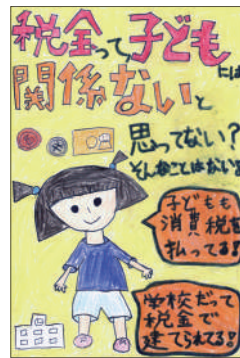 税金って、子どもには
関係ないと
思ってない?
そんなことはない!
子どもも
消費税を
払ってる!
学校だって
税金で
建てられてる!